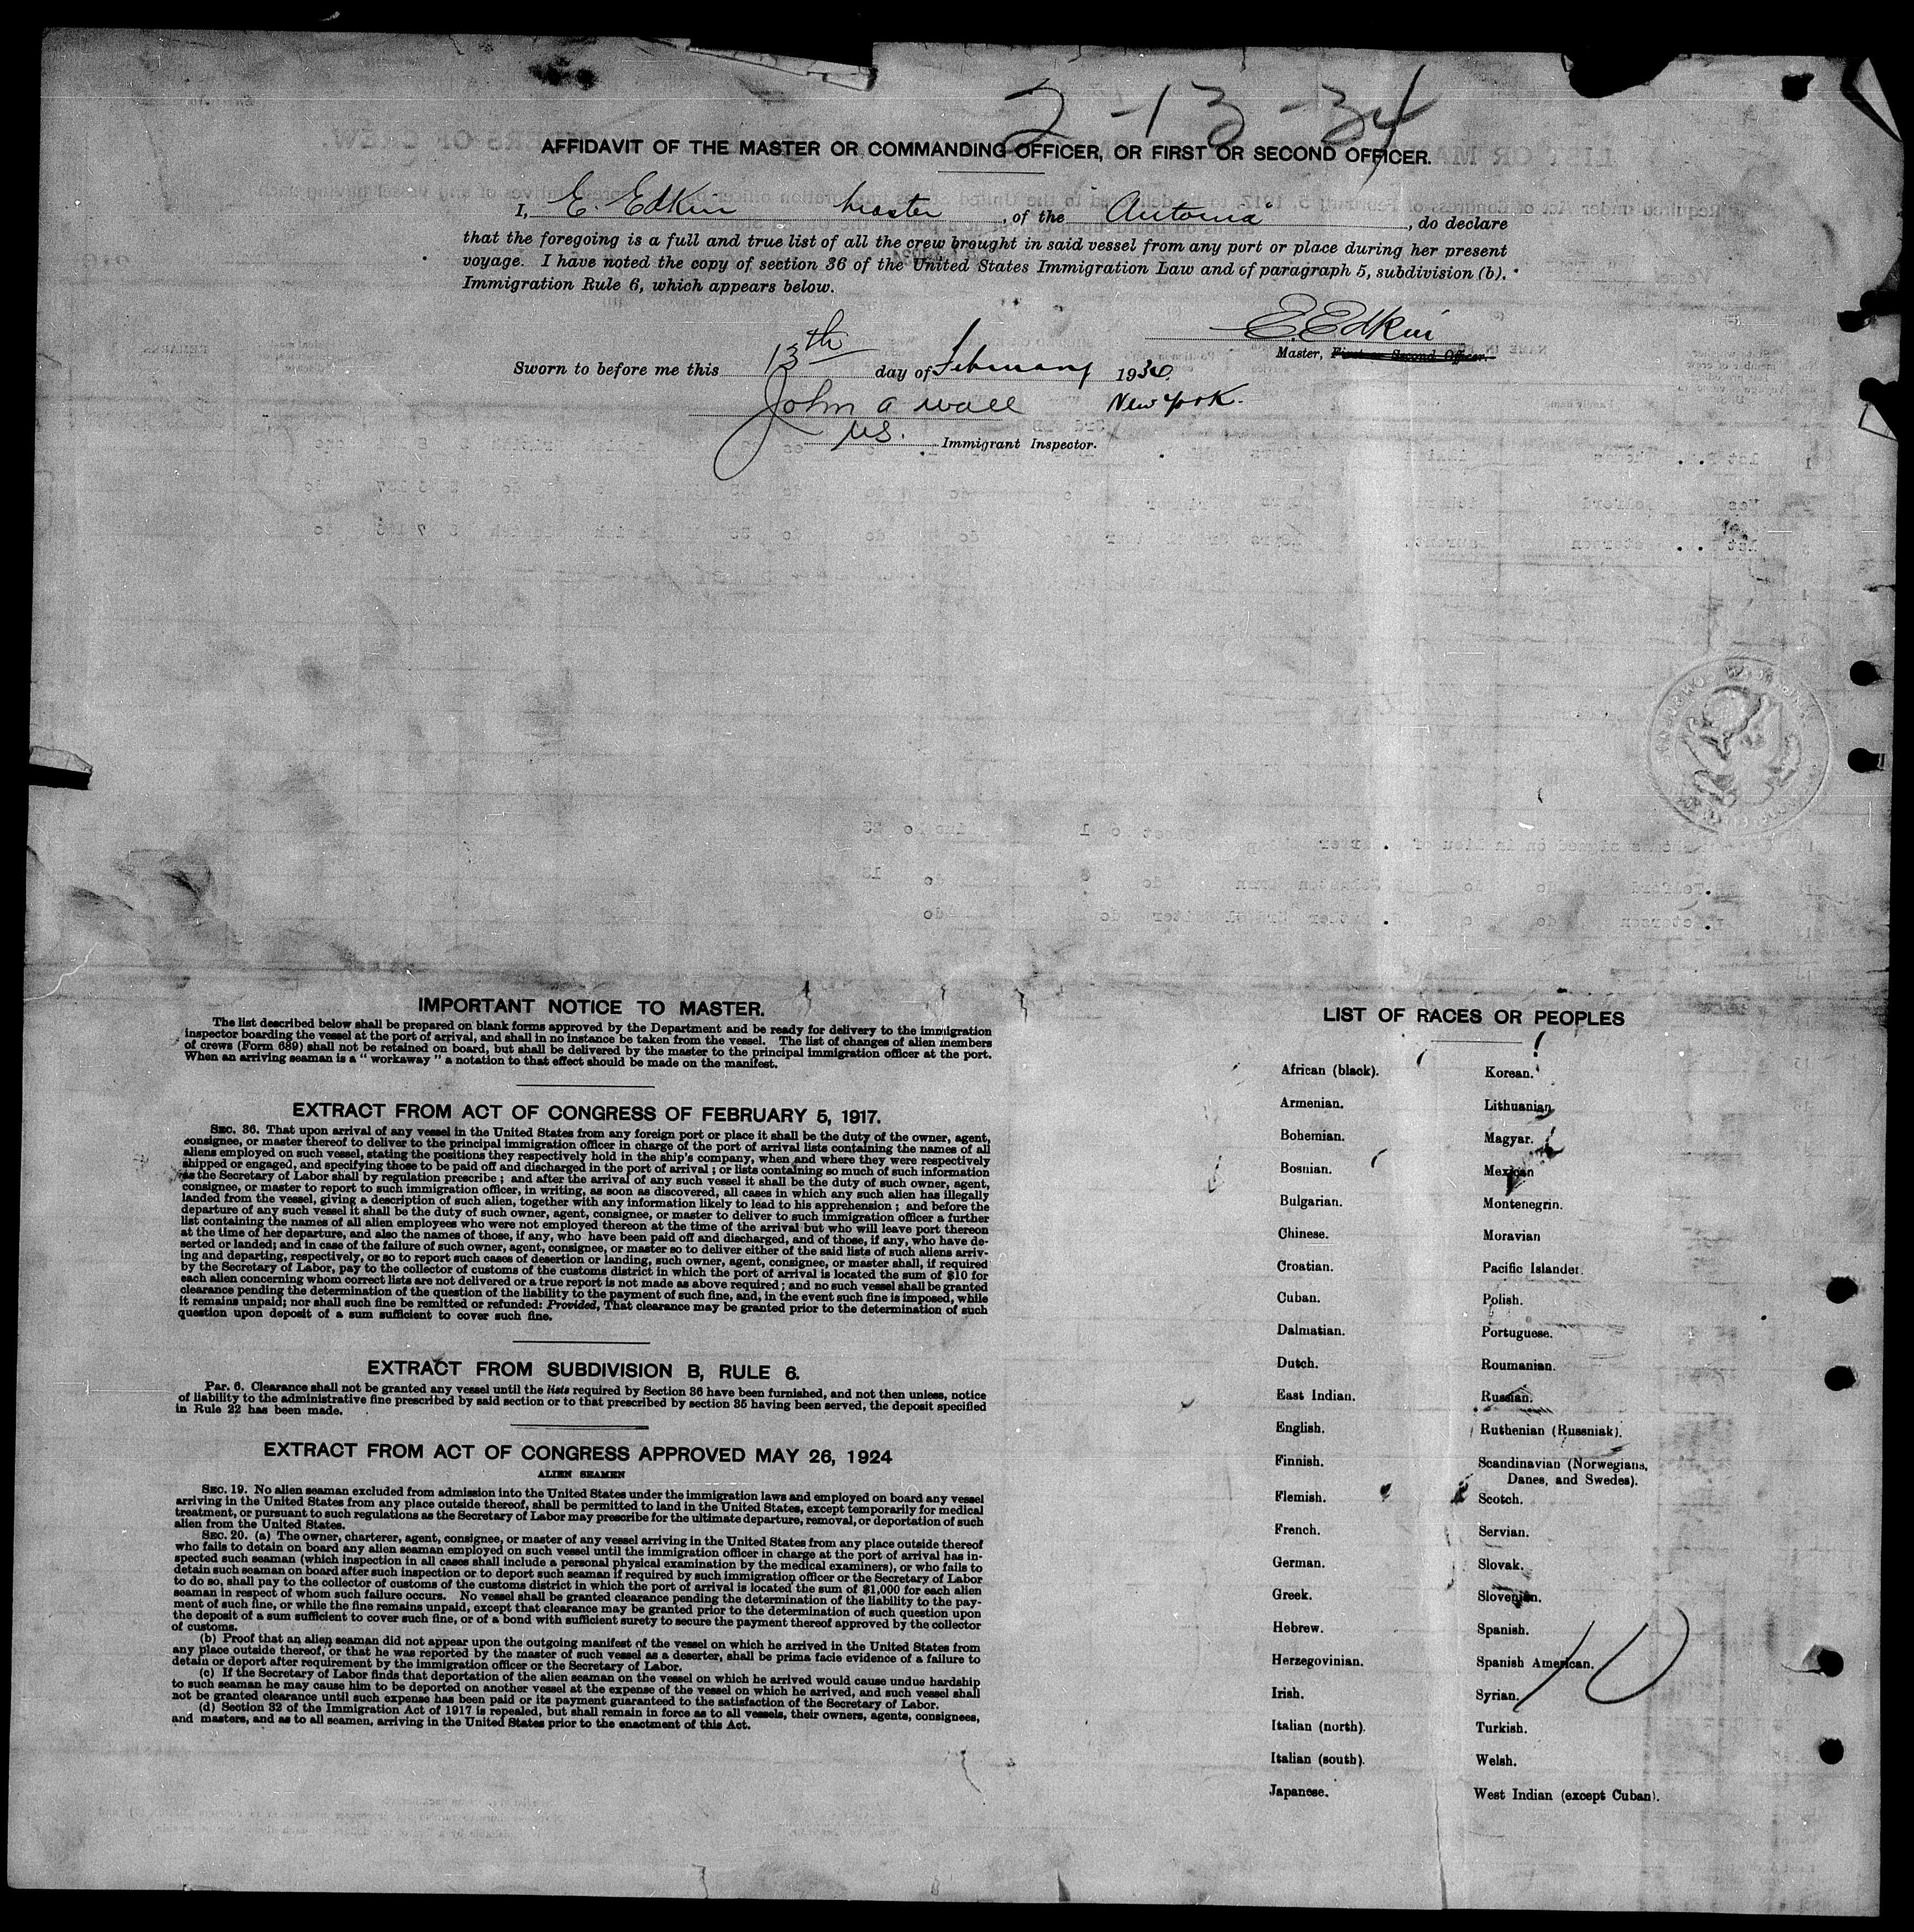 2-13-34
AFFIDAVIT OF THE MASTER OR COMMANDING OFFICER, OR FIRST OR SECOND OFFICER.
I, E. Edkin Master, of the "Antonia", do declare
that the foregoing is a full and true list of all the crew brought in said vessel from any port or place during her present
voyage. I have noted the copy of section 36 of the United States Immigration Law and of paragraph 5, subdivision (b).
Immigration Rule 6, which appears below.
E. Edkin
Master, First or Second Officer.
Sworn to before me this 13th day of February 1934.
John A Wall New York.
US. Immigrant Inspector.
IMPORTANT NOTICE TO MASTER.
The list described below shall be prepared on blank forms approved by the Department and be ready for delivery to the immigration
inspector boarding the vessel at the port of arrival, and shall in no instance be taken from the vessel. The list of changes of alien members
of crews (Form 689) shall not be retained on board, but shall be delivered by the master to the principal immigration officer at the port.
When an arriving seaman is a "workaway" a notation to that effect should be made on the manifest.
EXTRACT FROM ACT OF CONGRESS OF FEBRUARY 5, 1917.
SEC. 36. That upon arrival of any vessel in the United States from any foreign port or place it shall be the duty of the owner, agent,
consignee, or master thereof to deliver to the principal immigration officer in charge of the port of arrival lists containing the names of all
aliens employed on such vessel, stating the positions they respectively hold in the ship's company, when and where they were respectively
shipped or engaged, and specifying those to be paid off and discharged in the port of arrival; or lists containing so much of such information
as the Secretary of Labor shall by regulation prescribe; and after the arrival of any such vessel it shall be the duty of such owner, agent,
consignee, or master to report to such immigration officer, in writing, as soon as discovered, all cases in which any such alien has illegally
landed from the vessel, giving a description of such alien, together with any information likely to lead to his apprehension; and before the
departure of any such vessel it shall be the duty of such owner, agent, consignee, or master to deliver to such immigration officer a further
list containing the names of all alien employees who were not employed thereon at the time of the arrival but who will leave port thereon
at the time of her departure, and also the names of those, if any, who have been paid off and discharged, and of those, if any, who have de-
serted or landed; and in case of the failure of such owner, agent, consignee, or master so to deliver either of the said lists of such aliens arriv-
ing and departing, respectively, or so to report such cases of desertion or landing, such owner, agent, consignee, or master shall, if required
by the Secretary of Labor, pay to the collector of customs of the customs district in which the port of arrival is located the sum of $10 for
each alien concerning whom correct lists are not delivered or a true report is not made as above required; and no such vessel shall be granted
clearance pending the determination of the question of the liability to the payment of such fine, and, in the event such fine is imposed, while
it remains unpaid; nor shall such fine be remitted or refunded: Provided, That clearance may be granted prior to the determination of such
question upon deposit of a sum sufficient to cover such fine.
EXTRACT FROM SUBDIVISION B, RULE 6.
Par. 6. Clearance shall not be granted any vessel until the lists required by Section 36 have been furnished, and not then unless, notice
of liability to the administrative fine prescribed by said section or to that prescribed by section 35 having been served, the deposit specified
in Rule 22 has been made.
EXTRACT FROM ACT OF CONGRESS APPROVED MAY 26, 1924
ALIEN SEAMEN
SEC. 19. No alien seaman excluded from admission into the United States under the immigration laws and employed on board any vessel
arriving in the United States from any place outside thereof, shall be permitted to land in the United States, except temporarily for medical
treatment, or pursuant to such regulations as the Secretary of Labor may prescribe for the ultimate departure, removal, or deportation of such
alien from the United States.
SEC. 20. (a) The owner, charterer, agent, consignee, or master of any vessel arriving in the United States from any place outside thereof
who fails to detain on board any alien seaman employed on such vessel until the immigration officer in charge at the port of arrival has in-
spected such seaman (which inspection in all cases shall include a personal physical examination by the medical examiners), or who fails to
detain such seaman on board after such inspection or to deport such seaman if required by such immigration officer or the Secretary of Labor
to do so, shall pay to the collector of customs of the customs district in which the port of arrival is located the sum of $1,000 for each alien
seaman in respect of whom such failure occurs. No vessel shall be granted clearance pending the determination of the liability to the pay-
ment of such fine, or while the fine remains unpaid, except that clearance may be granted prior to the determination of such question upon
the deposit of a sum sufficient to cover such fine, or of a bond with sufficient surety to secure the payment thereof approved by the collector
of customs.
(b) Proof that an alien seaman did not appear upon the outgoing manifest of the vessel on which he arrived in the United States from
any place outside thereof, or that he was reported by the master of such vessel as a deserter, shall be prima facie evidence of a failure to
detain or deport after requirement by the immigration officer or the Secretary of Labor.
(c) If the Secretary of Labor finds that deportation of the alien seaman on the vessel on which he arrived would cause undue hardship
to such seaman he may cause him to be deported on another vessel at the expense of the vessel on which he arrived, and such vessel shall
not be granted clearance until such expense has been paid or its payment guaranteed to the satisfaction of the Secretary of Labor.
(d) Section 32 of the Immigration Act of 1917 is repealed, but shall remain in force as to all vessels, their owners, agents, consignees,
and masters, and as to all seamen, arriving in the United States prior to the enactment of this Act.
LIST OF RACES OR PEOPLES
African (black).
Armenian.
Bohemian.
Bosnian.
Bulgarian.
Chinese.
Croatian.
Cuban.
Dalmatian.
Dutch.
East Indian.
English.
Finnish.
Flemish.
French.
German.
Greek.
Hebrew.
Herzegovinian.
Irish.
Italian (north).
Italian (south).
Japanese.
Korean.
Lithuanian.
Magyar.
Mexican
Montenegrin.
Moravian
Pacific Islander.
Polish.
Portuguese.
Roumanian.
Russian.
Ruthenian (Russniak).
Scandinavian (Norwegians,
Danes, and Swedes).
Scotch.
Servian.
Slovak.
Slovenian.
Spanish.
Spanish American.
Syrian.
Turkish.
Welsh.
West Indian (except Cuban).
10